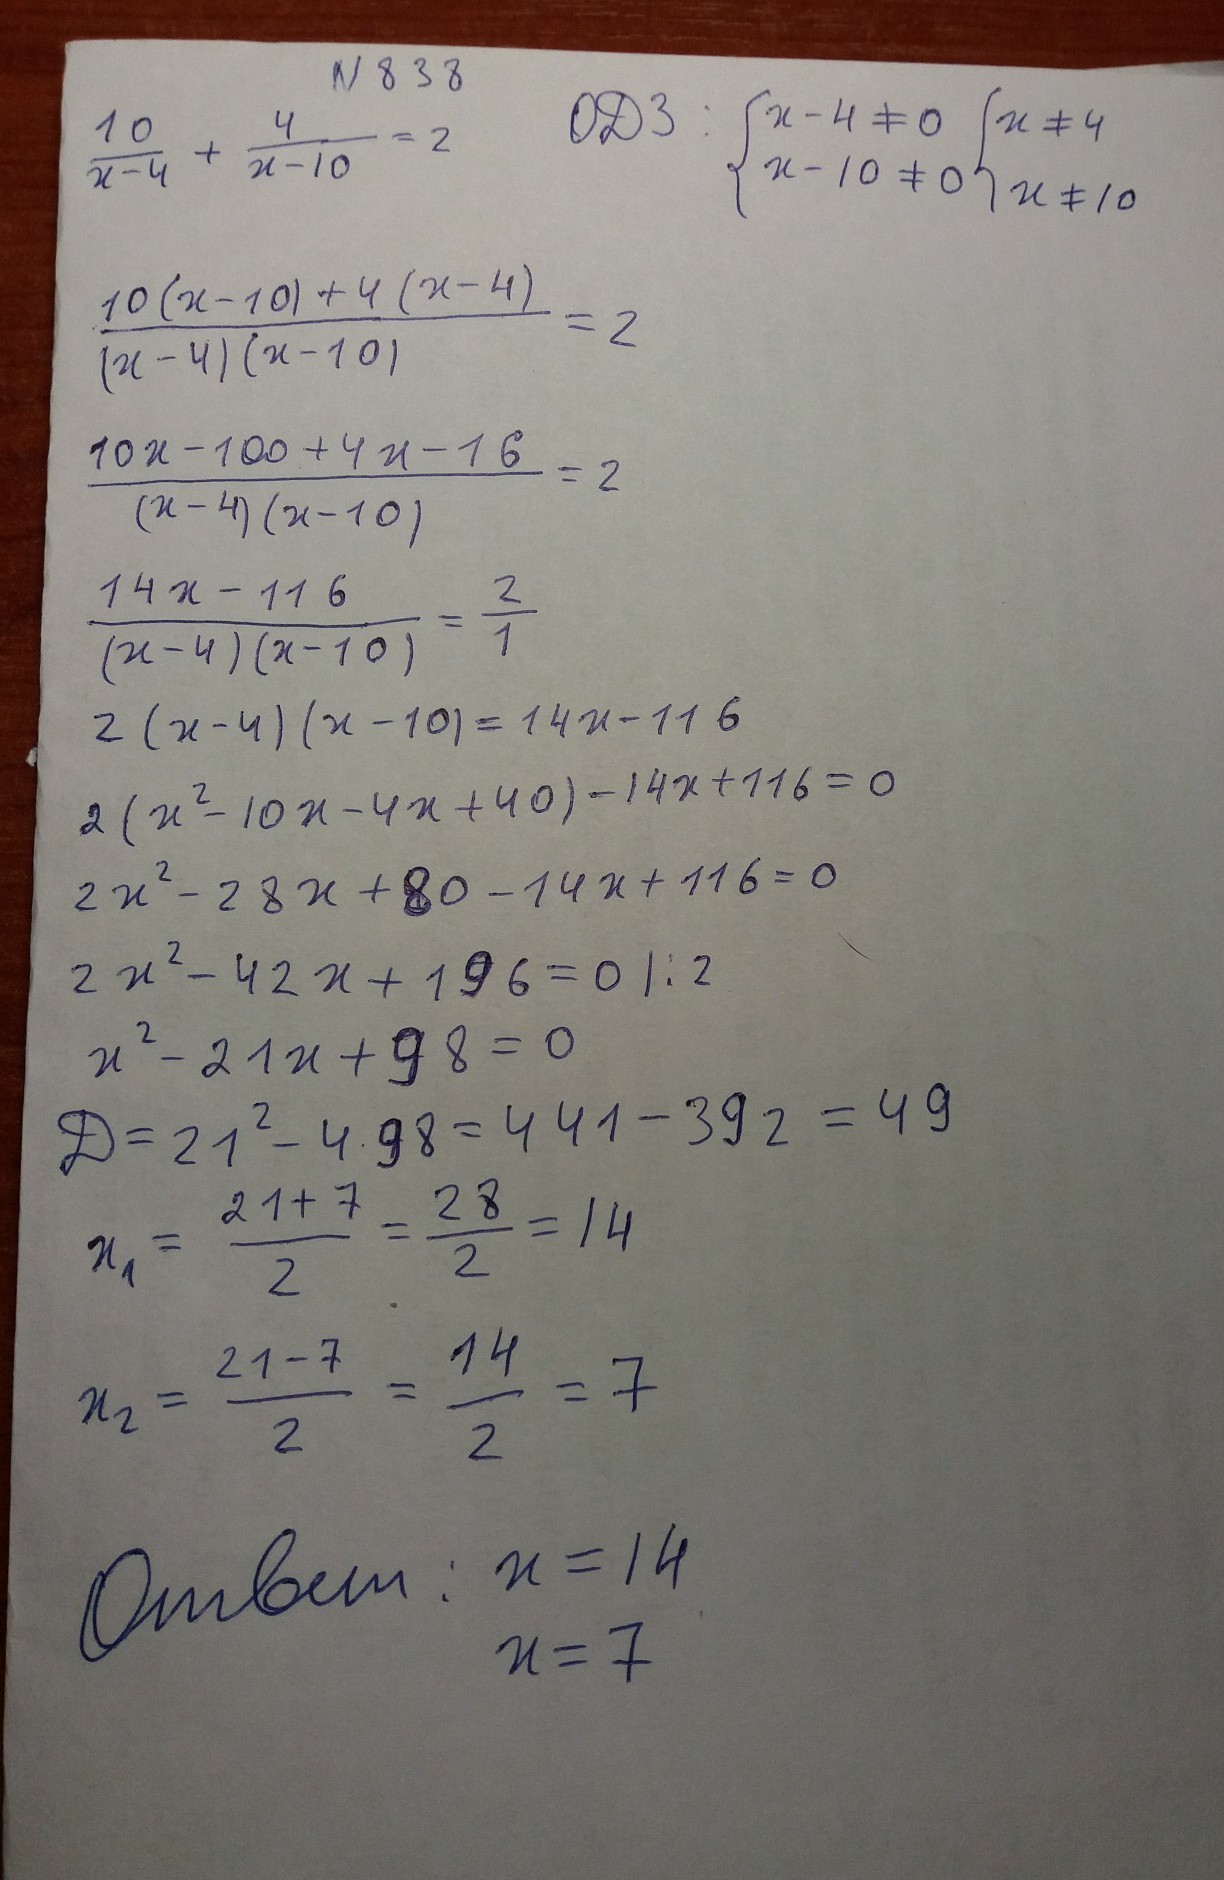 N 838
10/(x-4) + 4/(x-10) = 2 ОДЗ: {x-4≠0 {x≠4
x-10≠0 x≠10
(10(x-10)+4(x-4))/((x-4)(x-10)) = 2
(10x-100+4x-16)/((x-4)(x-10)) = 2
(14x-116)/((x-4)(x-10)) = 2/1
2(x-4)(x-10)=14x-116
2(x²-10x-4x+40)-14x+116=0
2x²-28x+80-14x+116=0
2x²-42x+196=0 |:2
x²-21x+98=0
Д=21²-4·98=441-392=49
x₁ = (21+7)/2 = 28/2 = 14
x₂ = (21-7)/2 = 14/2 = 7
Ответ: x=14
x=7